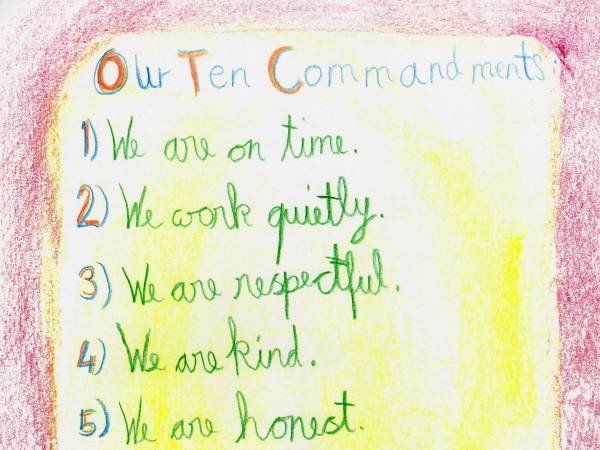 Our Ten Commandments:
1) We are on time.
2) We work quietly.
3) We are respectful.
4) We are kind.
5) We are honest.